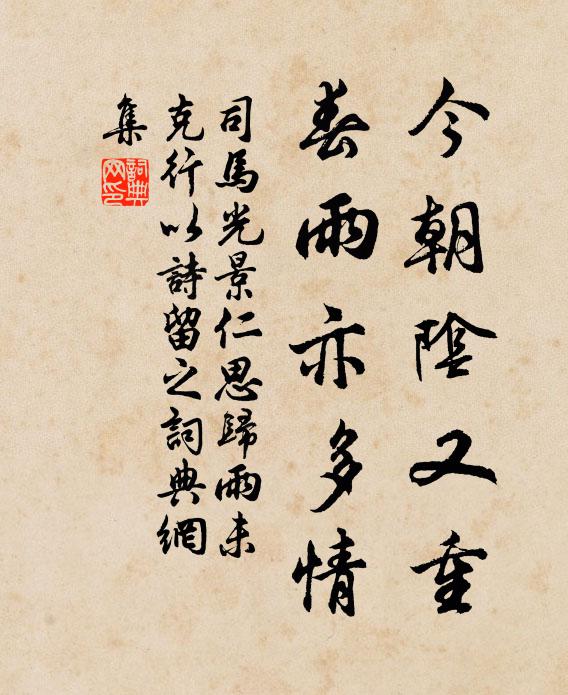 今朝陰又重
春雨亦多情
司馬光景仁思歸雨未
克行以詩留之詞典網
集
詞典
网印